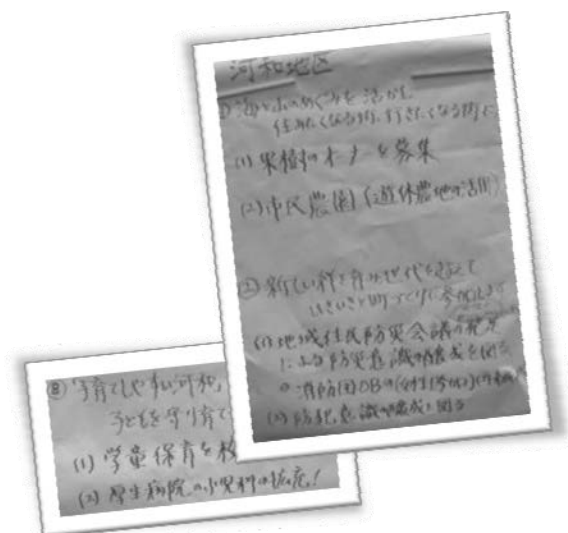 河和地区
① 海と山のめぐみを活かし
住みたくなる街、行きたくなる街に
(1) 果樹のオーナーを募集
(2) 市民農園(遊休農地の活用)
② 新しい絆を育み世代を超えて
いきいきと町づくりに参加しよう
(1) 地域住民防災会議の発足
による防災意識の醸成を図る
消防団OBの
(2) 防犯意識の醸成を図る
③ 子育てしやすい河和、
子どもを守り育て
(1) 学童保育を
(2) 厚生病院の小児科の拡充!